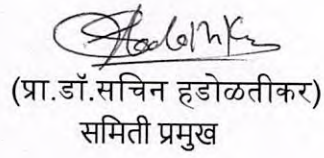 (प्रा.डॉ.सचिन हडोळतीकर)
समिती प्रमुख